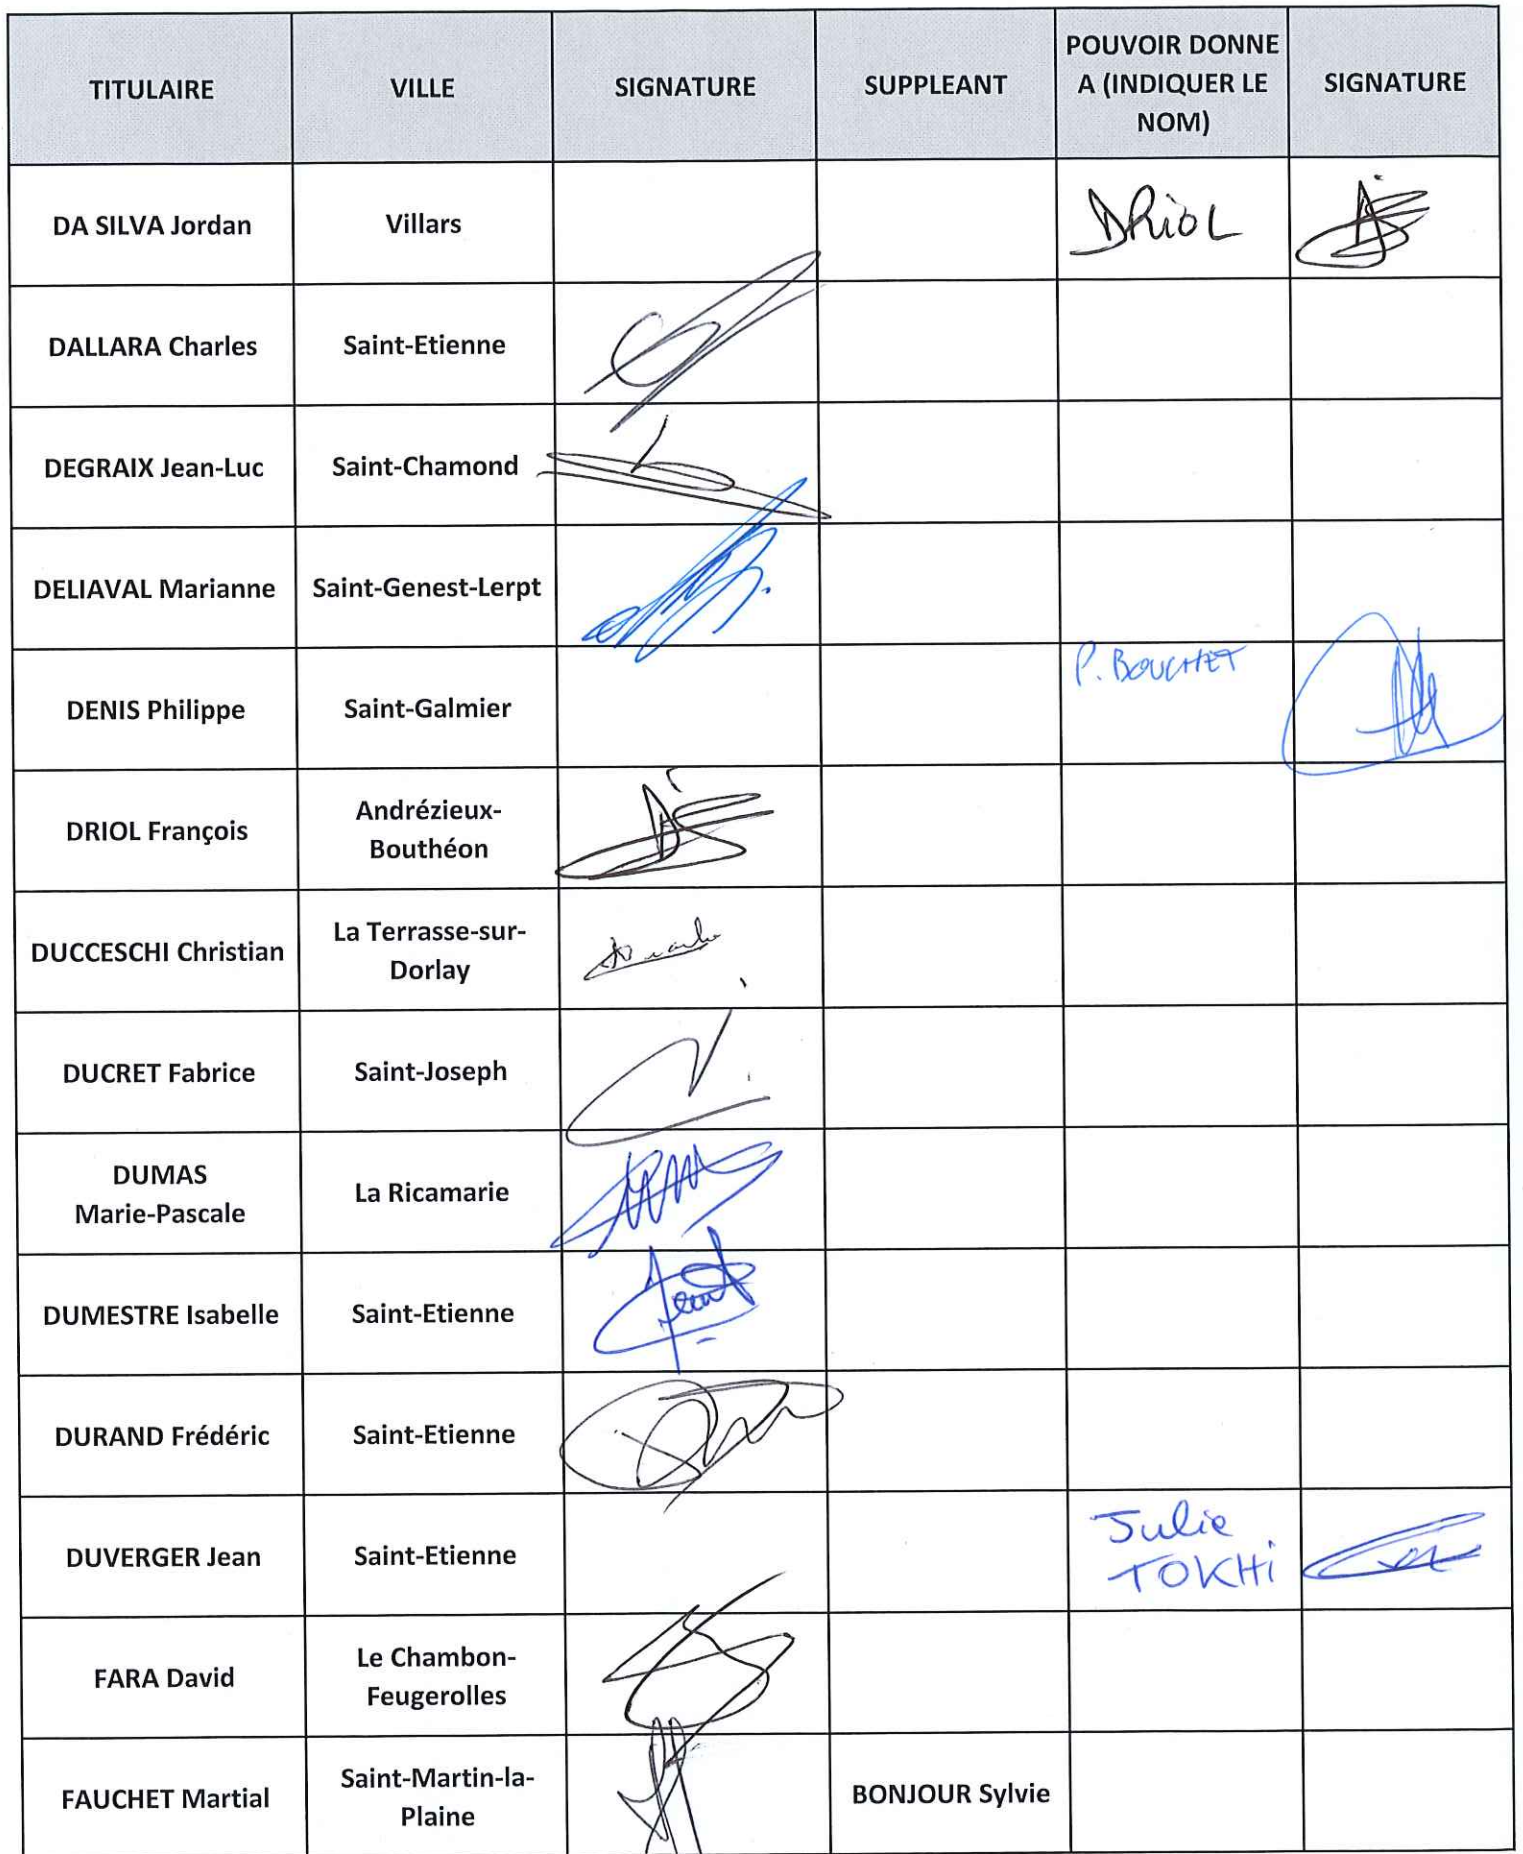 TITULAIRE
VILLE
SIGNATURE
SUPPLEANT
POUVOIR DONNE
A (INDIQUER LE
NOM)
SIGNATURE
DA SILVA Jordan
Villars
DRIOL
DALLARA Charles
Saint-Etienne
DEGRAIX Jean-Luc
Saint-Chamond
DELIAVAL Marianne
Saint-Genest-Lerpt
DENIS Philippe
Saint-Galmier
P. BOUCHET
DRIOL François
Andrézieux-
Bouthéon
DUCCESCHI Christian
La Terrasse-sur-
Dorlay
DUCRET Fabrice
Saint-Joseph
DUMAS
Marie-Pascale
La Ricamarie
DUMESTRE Isabelle
Saint-Etienne
DURAND Frédéric
Saint-Etienne
DUVERGER Jean
Saint-Etienne
Julie
TOKHi
FARA David
Le Chambon-
Feugerolles
FAUCHET Martial
Saint-Martin-la-
Plaine
BONJOUR Sylvie